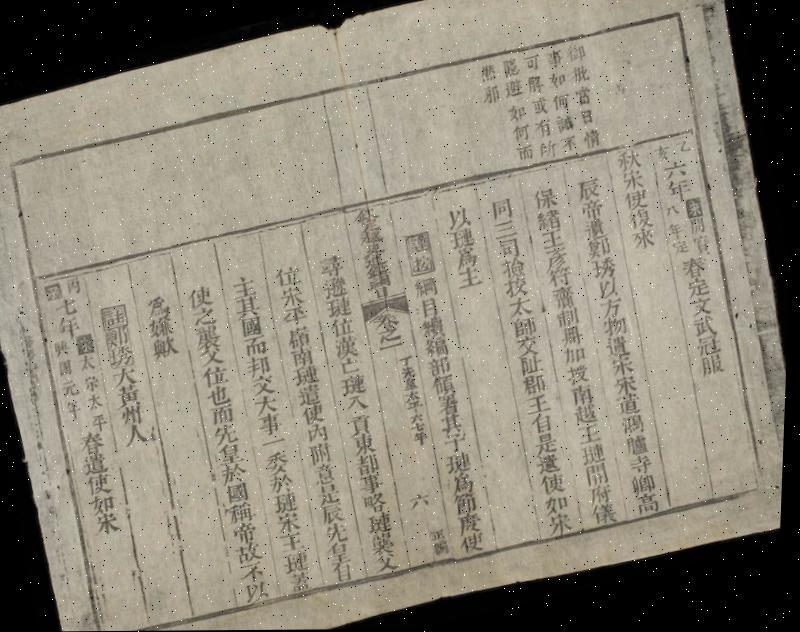 御批當日情
事如何誠不
可解或有所
隱避如何而
無邪
乙亥六年宋開寶八年定春定文武冠服
秋宋使復來
辰帝遣鄭琇以方物遺宋宋遣鴻臚寺卿高
保緒王彥符齎制冊加授南越王璉開府儀
同三司檢校太師交趾郡王自是遣使如宋
以璉為主
謹按綱目續編部領署其子璉為節度使
欽定越史 卷之一 丁先皇太平六七年 六 正編
尋遜璉位漢亡璉入貢東都事略璉襲父
位宋平嶺南璉遣使內附意是辰先皇自
主其國而邦交大事一委於璉宋王璉蓋
使之襲父位也而先皇於國稱帝故不以
為嫌歟
註鄭琇大黃州人
丙子七年宋太宗太平興國元年春遣使如宋